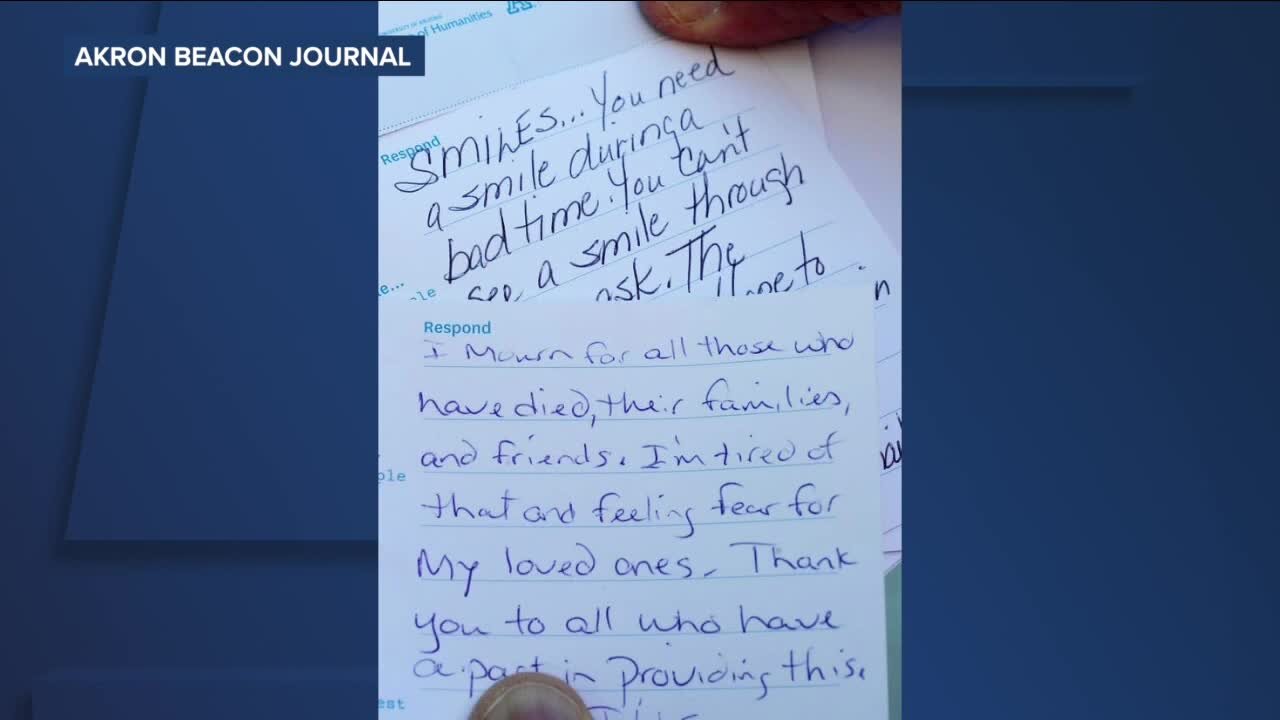 AKRON BEACON JOURNAL
of Humanities
Respond
SMILES... You need
a smile during a
bad time. You can't
see a smile through
The
to
Respond
I Mourn for all those who
have died, their families,
and friends. I'm tired of
that and feeling fear for
My loved ones. Thank
you to all who have
a part in providing this.